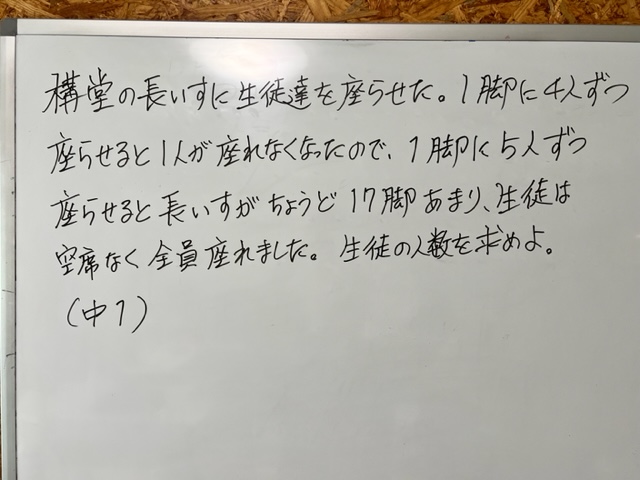 構堂の長いすに生徒達を座らせた。1脚に4人ずつ
座らせると1人が座れなくなったので、1脚に5人ずつ
座らせると長いすがちょうど17脚あまり、生徒は
空席なく全員座れました。生徒の人数を求めよ。
(中1)